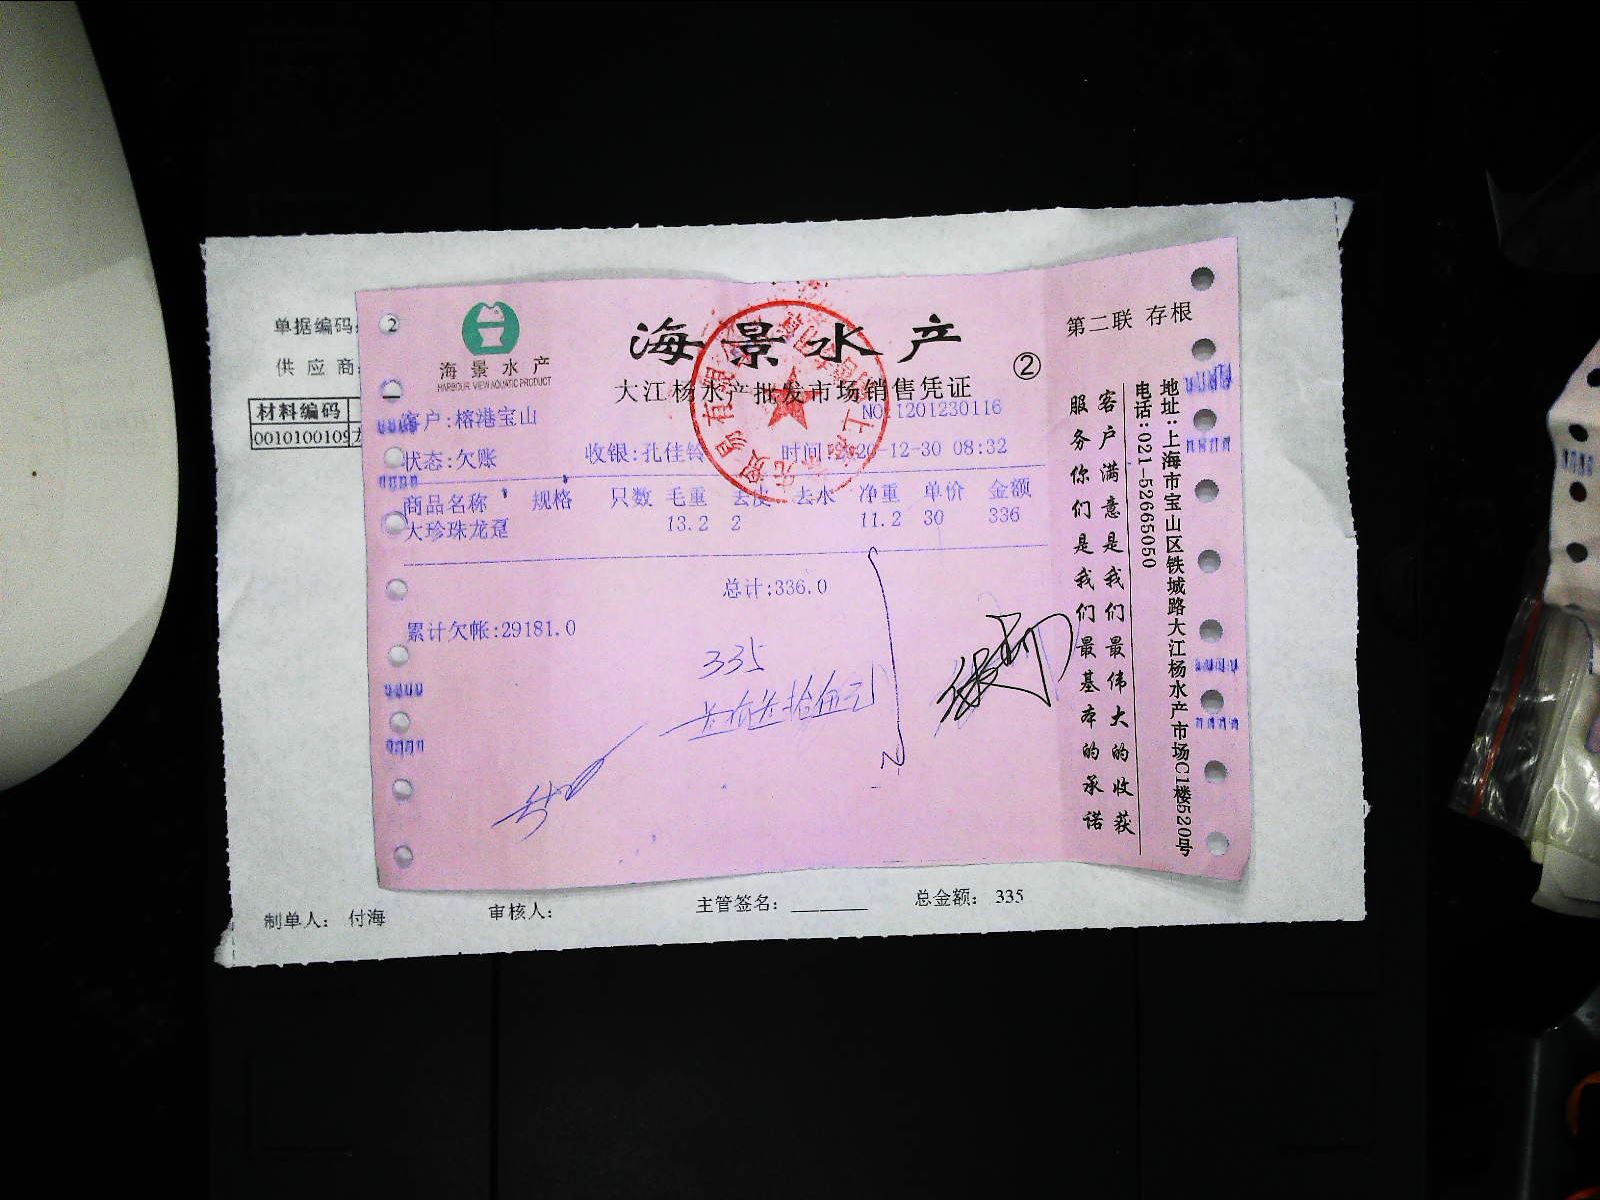 单据编码
供 应 商
材料编码
0010100109
2
海景水产
HARBOUR VIEW AQUATIC PRODUCT
海景水产
大江杨水产批发市场销售凭证
②
第二联 存根
NO:1201230116
客户:榕港宝山
状态:欠账 收银:孔佳铃 时间:2020-12-30 08:32
商品名称 规格 只数 毛重 去皮 去水 净重 单价 金额
大珍珠龙趸 13.2 2 11.2 30 336
总计:336.0
累计欠帐:29181.0
335
叁佰叁拾伍元
客户满意是我们最伟大的收获
服务你们是我们最基本的承诺
地址:上海市宝山区铁城路大江杨水产市场C1楼520号
电话:021-52665050
制单人: 付海 审核人: 主管签名: 总金额: 335